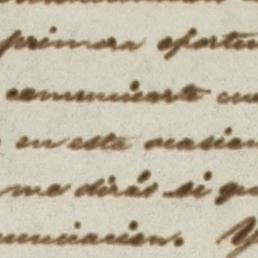 primera oportu
comunicarte cua
en esta ocasion
me dirás si qu
unicacion. Y